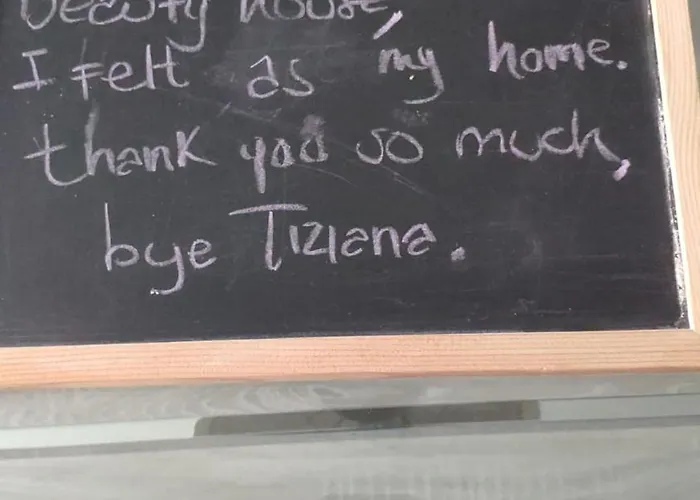 beauty house,
I Felt as my home.
thank you so much,
bye Tiziana.